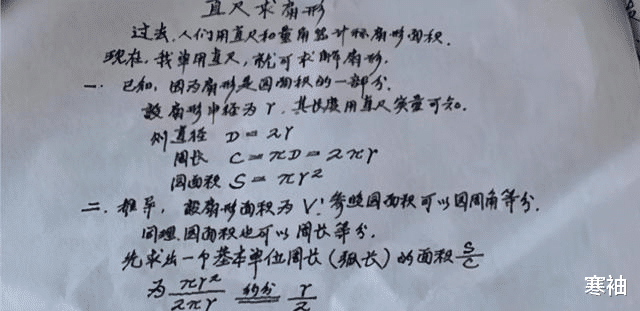 直尺求扇形
过去,人们用直尺和量角器计标扇形面积.
现在,我单用直尺,就可求解扇形.
一. 已知,因为扇形是园面积的一部分.
设扇形半径为r,其长度用直尺实量可知.
则直径 D=2r
周长 C=πD=2πr
园面积 S=πr²
二. 推导,设扇形面积为V!参照园面积可以园周角等分.
同理.园面积也可以周长等分.
先求出一个基本单位周长(弧长)的面积 S/C
为 πr²/2πr 约分 r/2
寒袖